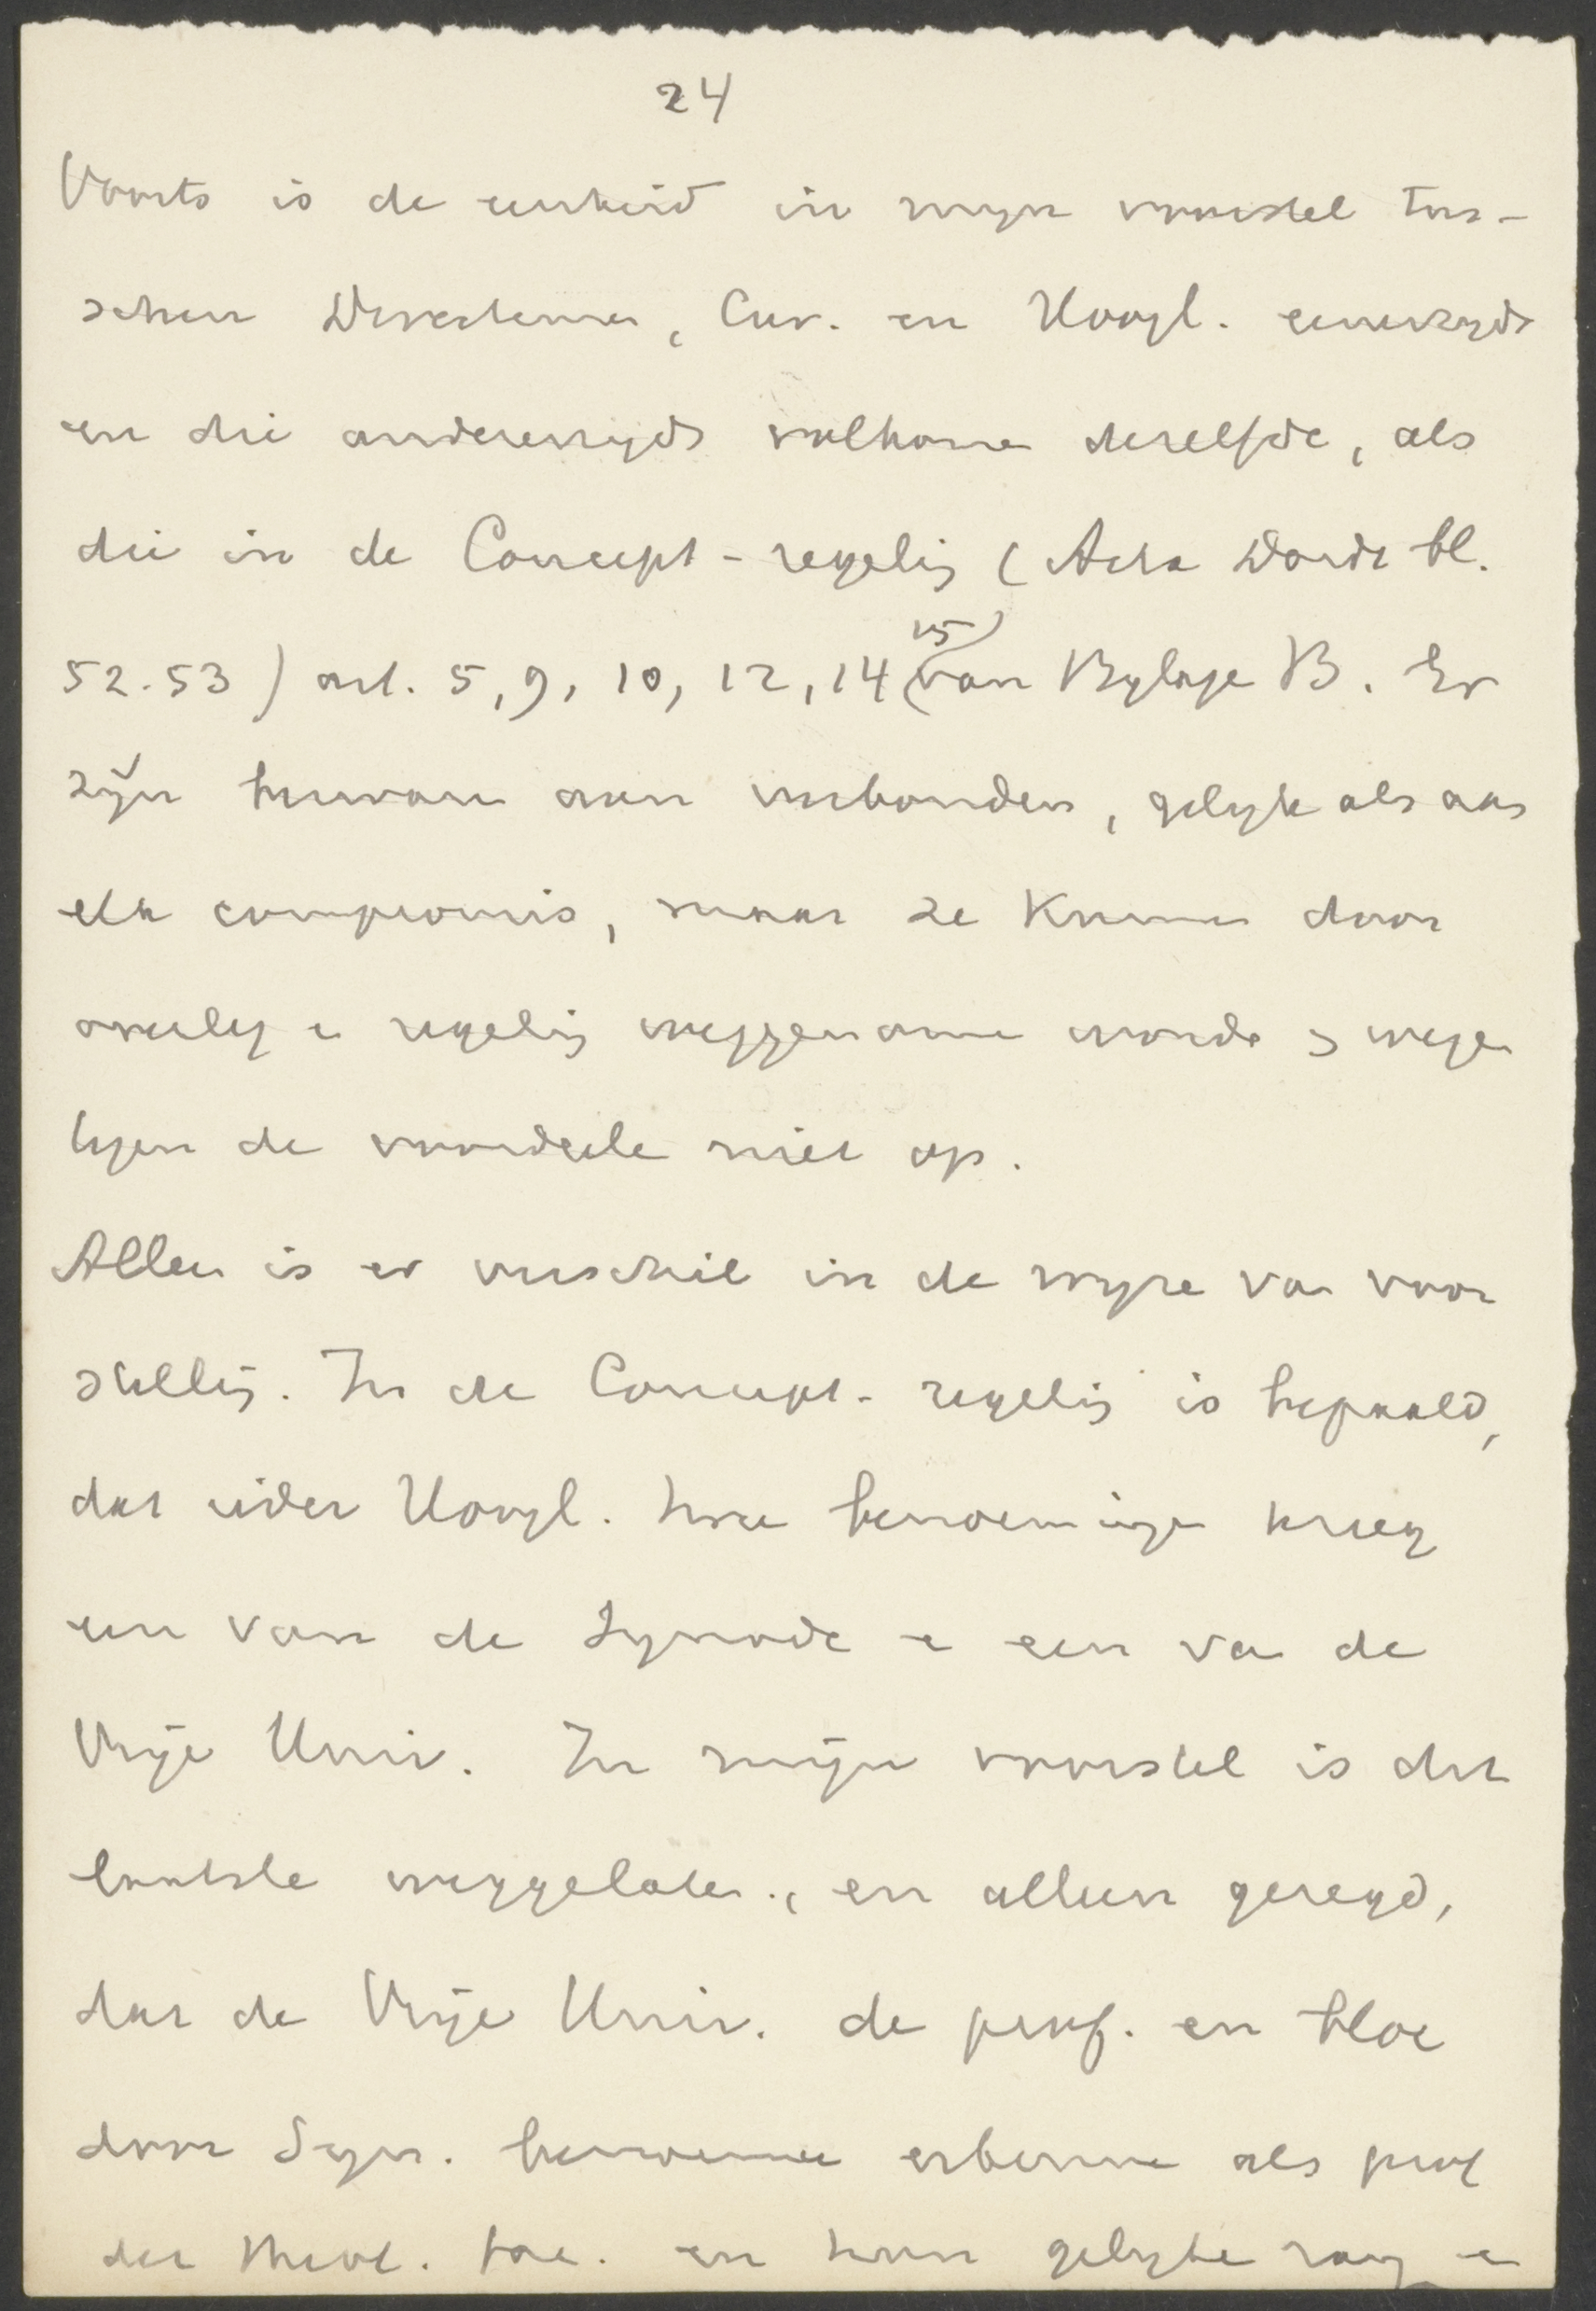 24
Voorts is de eenheid in mijn voorstel tus-
schen Directeuren, Cur. en Hoogl. eenerzijds
en die anderenzijds volkomen dezelfde, als
die in de Concept-regeling (Acta Dordr bl.
52.53) art. 5, 9, 10, 12, 14 15) van Bijlage B. Er
zijn bezwaren aan verbonden, gelijk als aan
elk compromis, maar ze kunnen door
overleg en regeling weggenomen worden en wegen
tegen de voordeelen niet op.
Alleen is er verschil in de wijze van voor
stelling. In de Concept-regeling is bepaald,
dat ieder Hoogl. twee benoemingen kreeg
een van de Synode en een van de
Vrije Univ. In mijn voorstel is dit
laatste weggelaten, en alleen gezegd,
dat de Vrije Univ. de prof. en bloc
door Syn. benoemd erkennen als prof
der theol. fac. en hun gelijke rang en